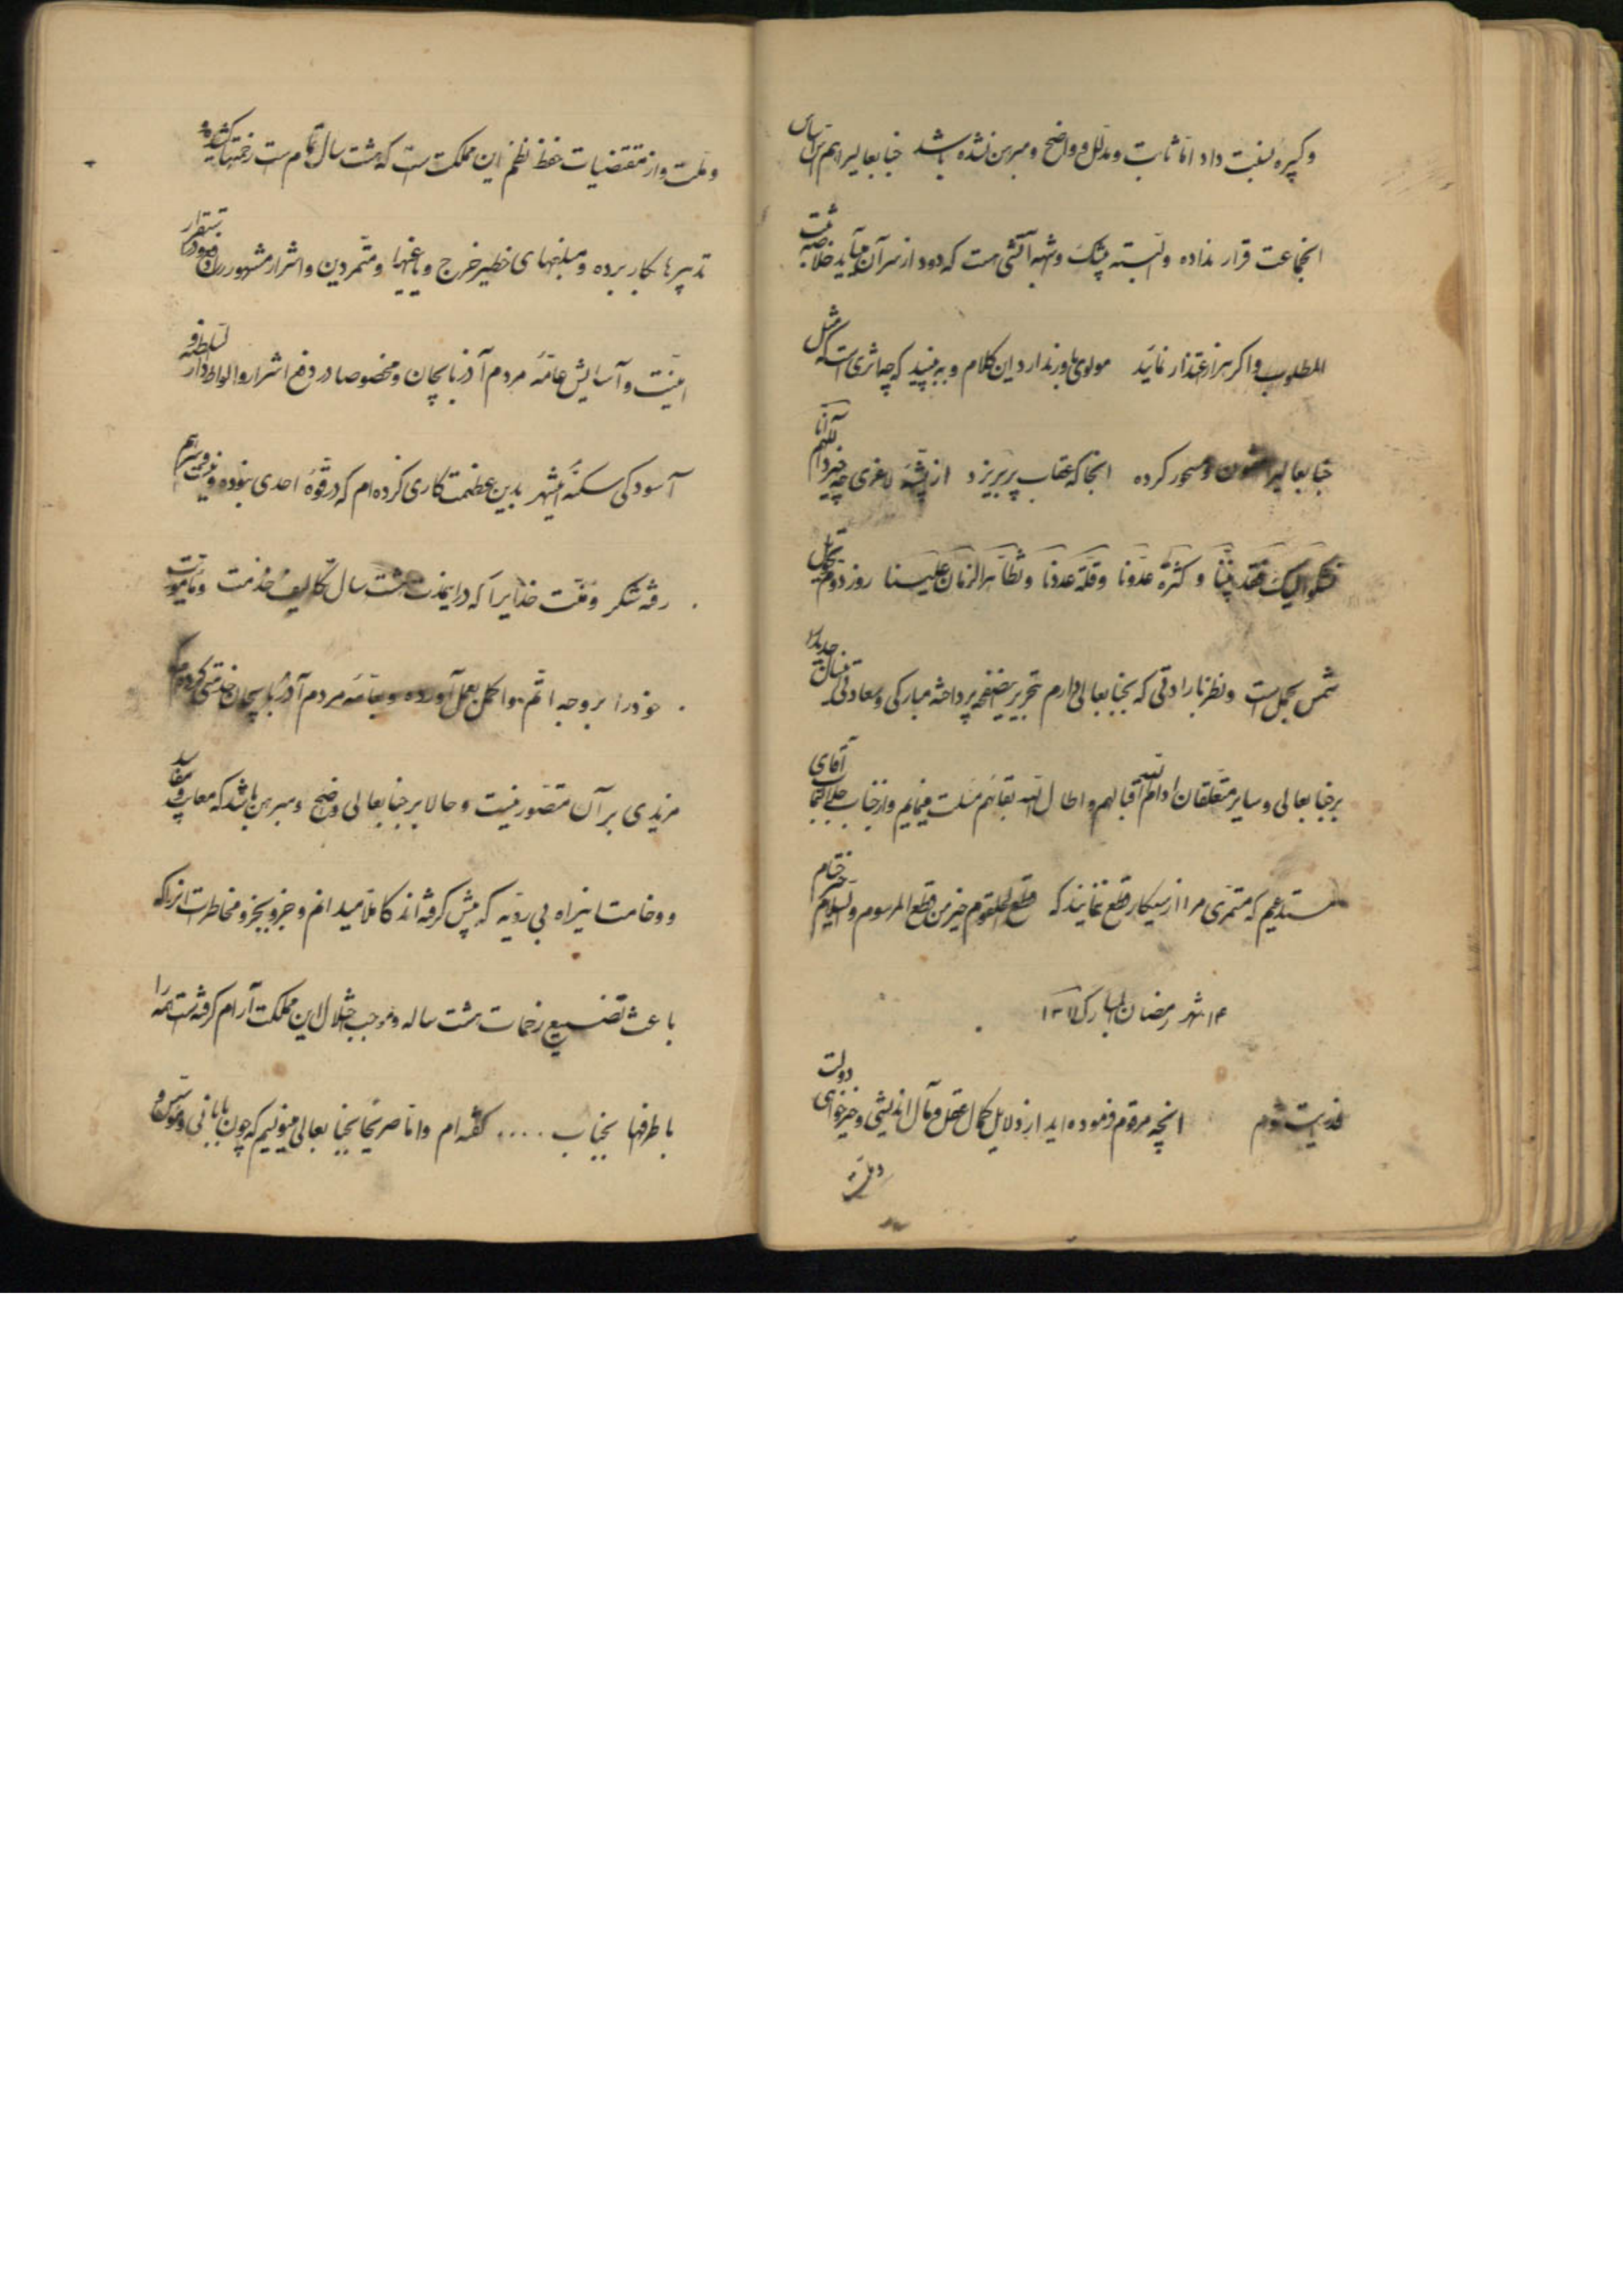 و کبیره نسبت داد اما ثابت و مدلل و واضح و مبرهن نشده باشد جنابعالی را هم براساس
انجماعت قرار نداده و البته بیشک و شبهه آتشی هست که دود از سر آن میآید خلاصه ثبت
المطلوب و اگر هزار اعتذار نمائید مولوی باور ندارد این کلام و به بینید که چه اثری است که مثل
جنابعالیرا مفتون و مسحور کرده انجا که عقاب پر بریزد از پشه لاغری چه خیزد اللهم انا
نشکو الیک فقد نبینا و کثرة عدونا و قلة عددنا و تظاهر الزمان علینا روز دوم تحویل
شمس بحمل است و نظر بارادتی که بجنابعالی دارم بتحریر این صفحه پرداخته مبارکی و سعادتی سال جدید را
بر جنابعالی و سایر متعلقان ادام الله اقبالهم و اطال الله بقائهم مسئلت مینمایم و از جناب جلالتمآب آقای
مستدعیم که مستمری مرا از اینکار قطع ننمایند که قطع الحلقوم خیر من قطع المرسوم والسلام خیر ختام
۱۴ شهر رمضان المبارک ۱۳۱۷
فدایت شوم انچه مرقوم فرموده اید از دلایل کمال عقل و مآل اندیشی و خیرخواهی دولت
و ملت و از مقتضیات حفظ نظم این مملکت است که هشت سال تمام است زحمتها کشیده
تدبیرها بکار برده و مبلغهای خطیر خرج و یاغیها و متمردین و اشرار مشهور را و استقرار
امنیت و آسایش عامه مردم آذربایجان و مخصوصا در دفع اشرار و الواط دار السلطنه و
آسودگی سکنه اینشهر بدین عظمت کاری کرده ام که در قوه احدی نبوده و نیست
رفته شکر و منت خدایرا که در اینمدت هشت سال تکالیف خدمت و مأموریت
خود را بر وجه اتم و اکمل بعمل آورده و بعامه مردم آذربایجان خدمتی کرده ام که
مزیدی بر آن متصور نیست و حالا بر جنابعالی واضح و مبرهن باشد که معایب و مفاسد
و وخامت اینراه بی رویه که پیش گرفته اند کاملا میدانم و جزو بجزو مخاطرات انرا که
باعث تضییع زحمات هشت ساله و موجب اختلال این مملکت آرام گرفته است همه را
با طرفها بجناب .... گفته ام و اما صریحا بجنابعالی مینویسم که چون بابانی و مؤسس